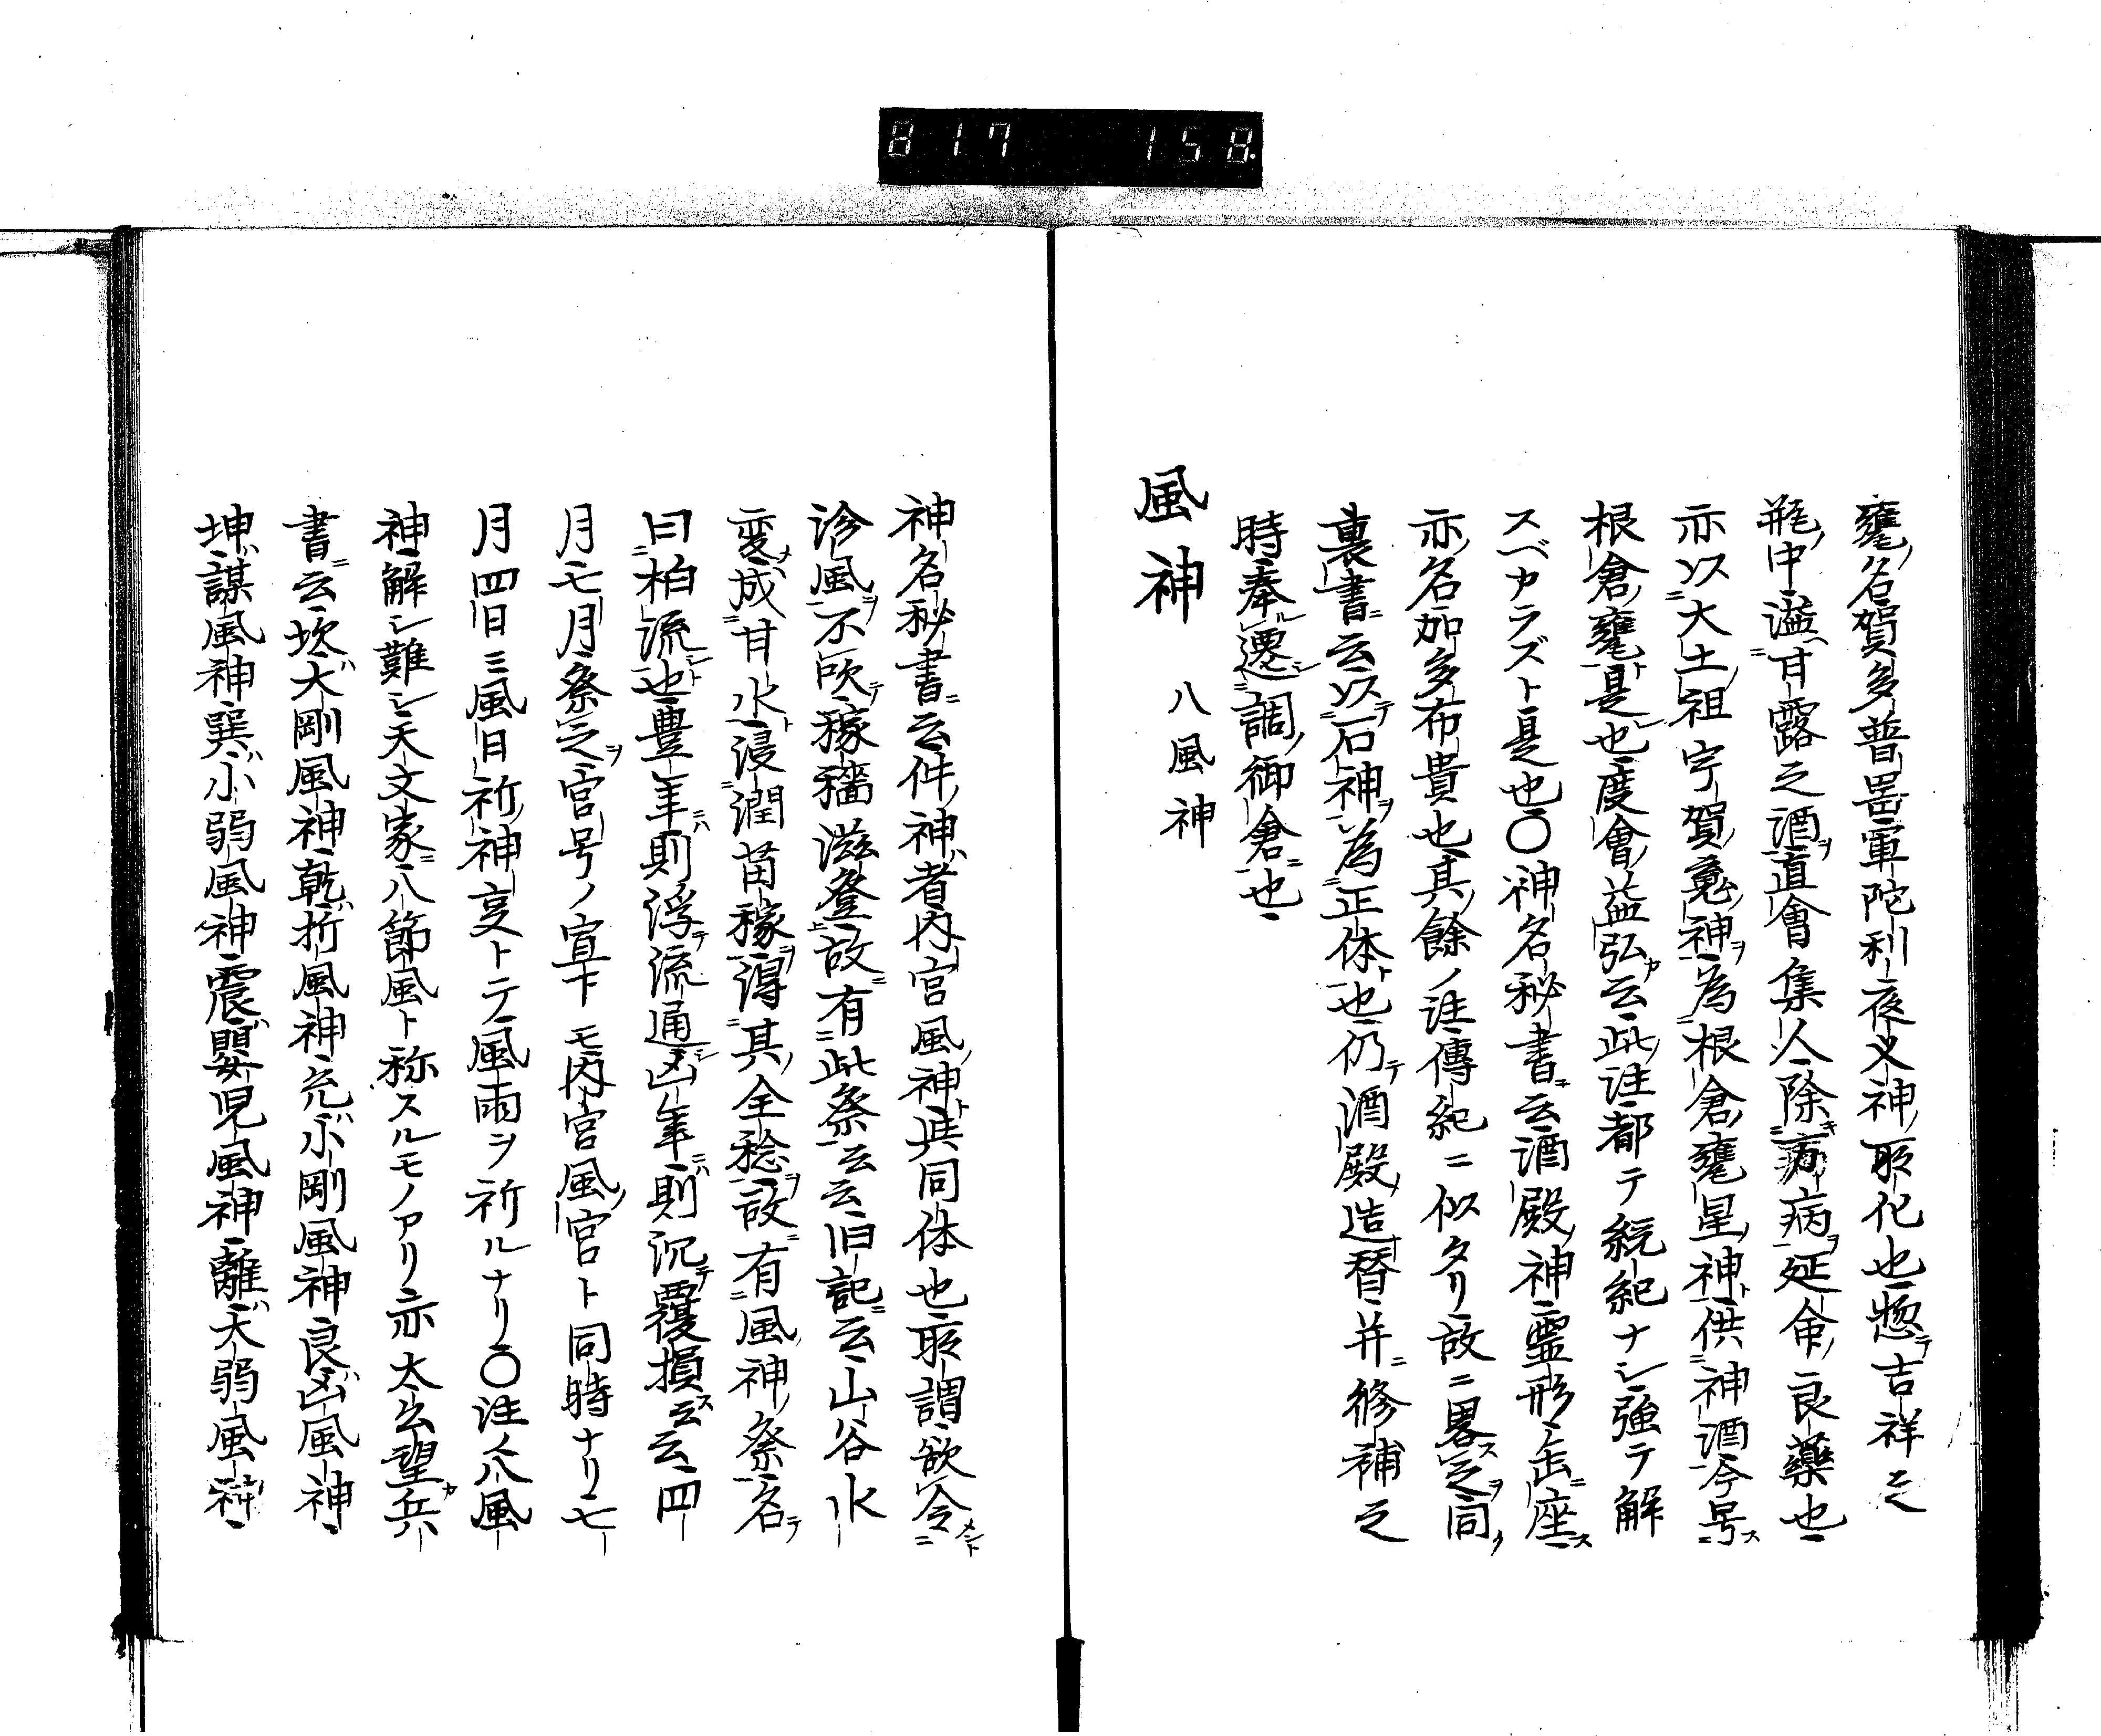 817 158
甕ノ名賀多普畐軍陀利夜叉神ノ所化也惣テ吉祥之
瓶ノ中ニ溢ハ甘露之酒ヲ直會集人除キ病ヲ延命ノ良藥也
亦以大土ノ祖宇賀ノ魂ノ神ヲ為根倉ノ甕星ノ神ト供神酒今号ス
根倉ノ甕ト是レ也度會ノ益弘カ云此ノ注都テ統紀ナシ強テ解
スベカラズト是也〇神名秘書ニ云酒殿ノ神霊形ハ缶ニ座ス
亦ノ名加多布貴也其ノ餘ノ注傳紀ニ似タリ故ニ畧ス之ヲ同ク
裏書ニ云以テ石神ヲ為正体ト也仍テ酒殿ノ造替并ニ修補之
時奉ル遷シ調ノ御倉ニ也
風神 八風神
神名秘書ニ云件ノ神者ハ内宮風ノ神ト共同体也所謂欲令メント
診風ヲ不吹テ稼穡滋登故ニ有此祭云云旧記ニ云山谷水
変メ成甘水ト浸潤苗稼ヲ得其ノ全稔ヲ故ニ有風ノ神ノ祭名テ
曰柏流シト也豊年ニハ則浮テ流通シ凶年ニハ則沉テ覆損ス云云四
月七月祭之ヲ宮号ノ宣下モ内宮風ノ宮ト同時ナリ七
月四日ニ風日祈ノ神㕝トテ風雨ヲ祈ルナリ〇注ノ八風
神解シ難シ天文家ニ八節風ト称スルモノアリ亦太公望カ兵
書ニ云坎ハ大剛風神乾ハ折風神兊ハ小剛風神艮ハ凶風神
坤ハ謀風神巽ハ小弱風神震ハ嬰児風神離ハ大弱風神